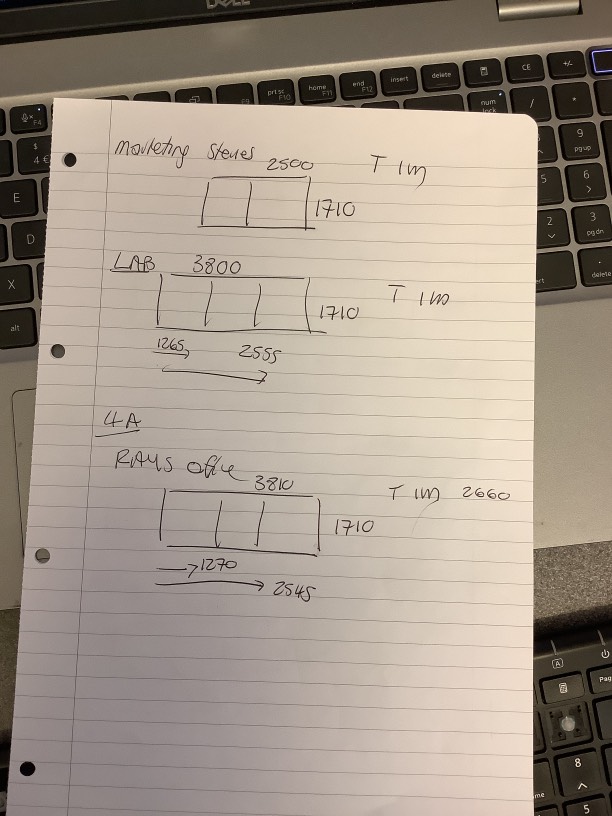 Marketing Steves 2500 T 1m
1710
LAB 3800
1710 T 1m
1265 2555
4A
RAYS office
3810 T 1m 2660
1710
1270
2545
DELL
prt sc F10
home F11
end F12
insert
delete
CE
+/-
F4
num lock
/
*
$
4 €
9 pg up
E
5
6
D
2
3 pg dn
X
alt
delete
A
Pag
8
5